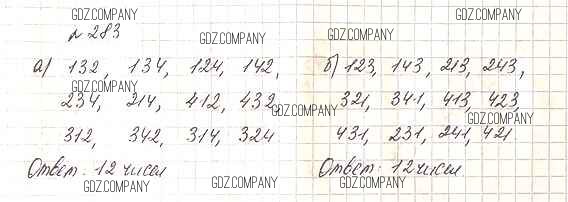 GDZ.COMPANY GDZ.COMPANY
№ 283
GDZ.COMPANY GDZ.COMPANY
а) 132, 134, 124, 142, б) 123, 143, 213, 243,
GDZ.COMPANY
234, 214, 412, 432 321, 341, 413, 423,
GDZ.COMPANY GDZ.COMPANY
312, 342, 314, 324 431, 231, 241, 421
Ответ: 12 чисел Ответ: 12 чисел
GDZ.COMPANY GDZ.COMPANY GDZ.COMPANY